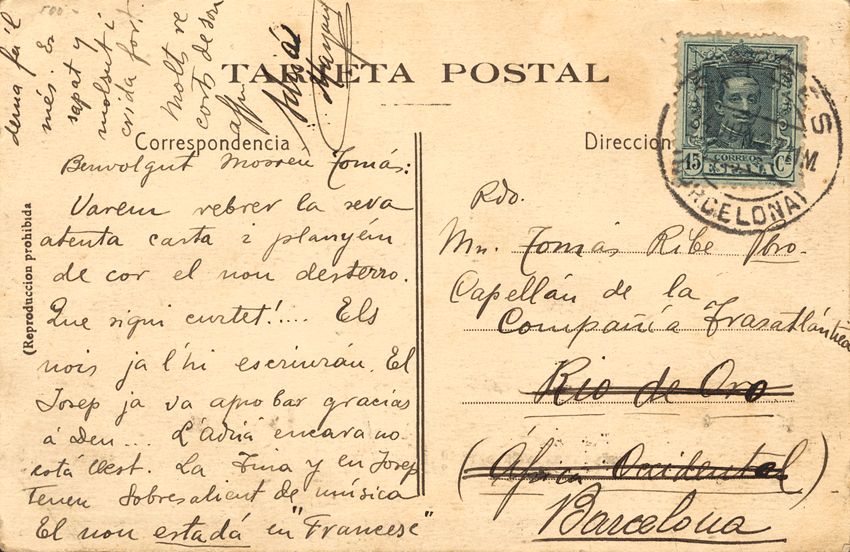 TARJETA POSTAL
Correspondencia
Direccion
(Reproduccion prohibida
Benvolgut Mossèn Tomás:
Varem rebrer la seva
atenta carta i planyém
de cor el nou desterro.
Que sigui curtet!.... Els
nois ja l'hi escriurán. El
Josep ja va aprobar gracias
á Deu... L'adriá encara no
está llest. La Fina y en Josep
tenen Sobresalient de música
El nou estadá en "Francese"
derna fa'l
més. Es
sapat y
molsut i
crida fort.
Molts re
corts de son
affm
15 CORREOS Cs
ESPAÑA
BARCELONA
Rdo.
Mn. Tomás Ribe Pbro.
Capellán de la
Compañia Trasatlántica
Rio de Oro
(África Occidental)
Barcelona